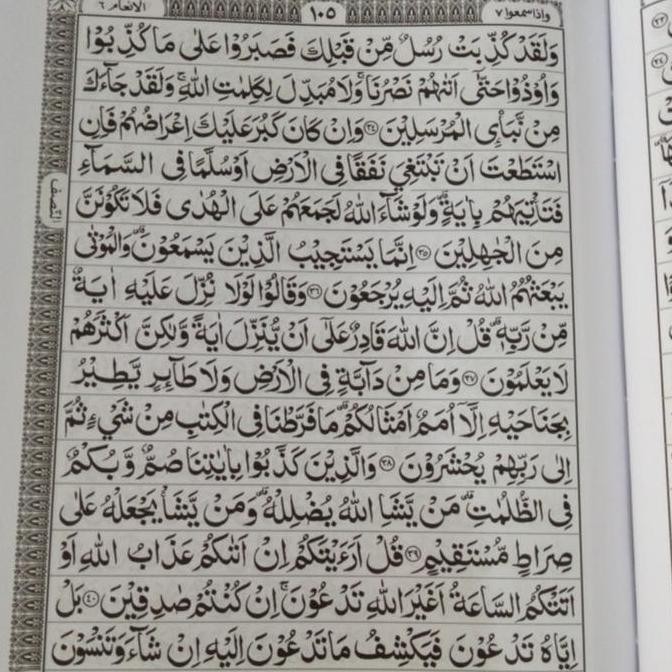 واذاسمعوا ٧ ١٠٥ الانعام ٦
وَلَقَدْ كُذِّبَتْ رُسُلٌ مِّنْ قَبْلِكَ فَصَبَرُوْا عَلٰى مَا كُذِّبُوْا
وَاُوْذُوْا حَتّٰٓى اَتٰىهُمْ نَصْرُنَا ۚ وَلَا مُبَدِّلَ لِكَلِمٰتِ اللّٰهِ ۚ وَلَقَدْ جَآءَكَ
مِنْ نَّبَاِى الْمُرْسَلِيْنَ ٣٤ وَاِنْ كَانَ كَبُرَ عَلَيْكَ اِعْرَاضُهُمْ فَاِنِ
اسْتَطَعْتَ اَنْ تَبْتَغِيَ نَفَقًا فِى الْاَرْضِ اَوْ سُلَّمًا فِى السَّمَآءِ
فَتَاْتِيَهُمْ بِاٰيَةٍ ؕ وَلَوْ شَآءَ اللّٰهُ لَجَمَعَهُمْ عَلَى الْهُدٰى فَلَا تَكُوْنَنَّ
مِنَ الْجٰهِلِيْنَ ٣٥ اِنَّمَا يَسْتَجِيْبُ الَّذِيْنَ يَسْمَعُوْنَ ؕ وَالْمَوْتٰى
يَبْعَثُهُمُ اللّٰهُ ثُمَّ اِلَيْهِ يُرْجَعُوْنَ ٣٦ وَقَالُوْا لَوْلَا نُزِّلَ عَلَيْهِ اٰيَةٌ
مِّنْ رَّبِّهٖ ؕ قُلْ اِنَّ اللّٰهَ قَادِرٌ عَلٰٓى اَنْ يُّنَزِّلَ اٰيَةً وَّلٰكِنَّ اَكْثَرَهُمْ
لَا يَعْلَمُوْنَ ٣٧ وَمَا مِنْ دَآبَّةٍ فِى الْاَرْضِ وَلَا طٰٓئِرٍ يَّطِيْرُ
بِجَنَاحَيْهِ اِلَّآ اُمَمٌ اَمْثَالُكُمْ ؕ مَا فَرَّطْنَا فِى الْكِتٰبِ مِنْ شَيْءٍ ثُمَّ
اِلٰى رَبِّهِمْ يُحْشَرُوْنَ ٣٨ وَالَّذِيْنَ كَذَّبُوْا بِاٰيٰتِنَا صُمٌّ وَّبُكْمٌ
فِى الظُّلُمٰتِ ؕ مَنْ يَّشَاِ اللّٰهُ يُضْلِلْهُ ؕ وَمَنْ يَّشَاْ يَجْعَلْهُ عَلٰى
صِرَاطٍ مُّسْتَقِيْمٍ ٣٩ قُلْ اَرَءَيْتَكُمْ اِنْ اَتٰىكُمْ عَذَابُ اللّٰهِ اَوْ
اَتَتْكُمُ السَّاعَةُ اَغَيْرَ اللّٰهِ تَدْعُوْنَ ۚ اِنْ كُنْتُمْ صٰدِقِيْنَ ٤٠ بَلْ
اِيَّاهُ تَدْعُوْنَ فَيَكْشِفُ مَا تَدْعُوْنَ اِلَيْهِ اِنْ شَآءَ وَتَنْسَوْنَ
النّصف